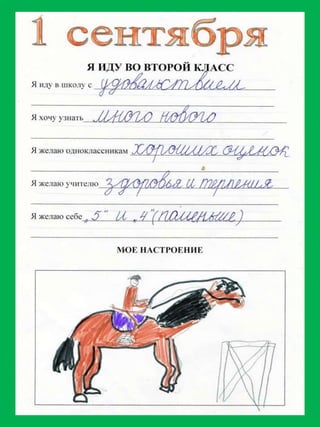 1 сентября
Я ИДУ ВО ВТОРОЙ КЛАСС
Я иду в школу с удовольствием
Я хочу узнать много нового
Я желаю одноклассникам хороших оценок
Я желаю учителю здоровья и терпения
Я желаю себе „5" и „4" (поменьше)
МОЕ НАСТРОЕНИЕ